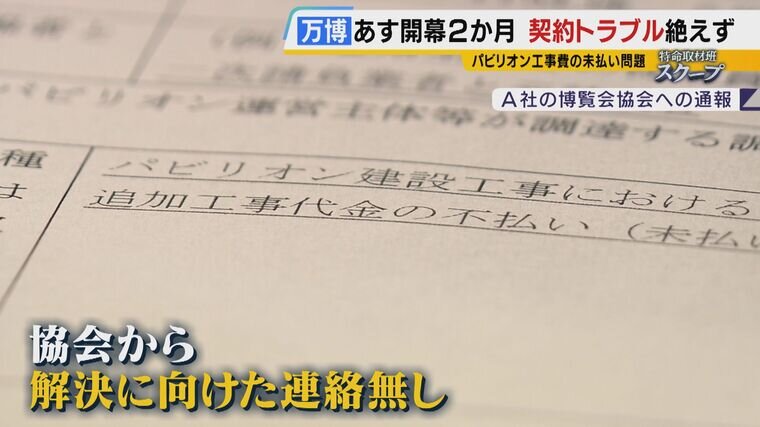 万博 あす開幕2か月 契約トラブル絶えず
パビリオン工事費の未払い問題 特命取材班 スクープ
A社の博覧会協会への通報
パビリオン運営主体等が調達する調
種
は
パビリオン建設工事における
追加工事代金の不払い(未払い
協会から
解決に向けた連絡無し